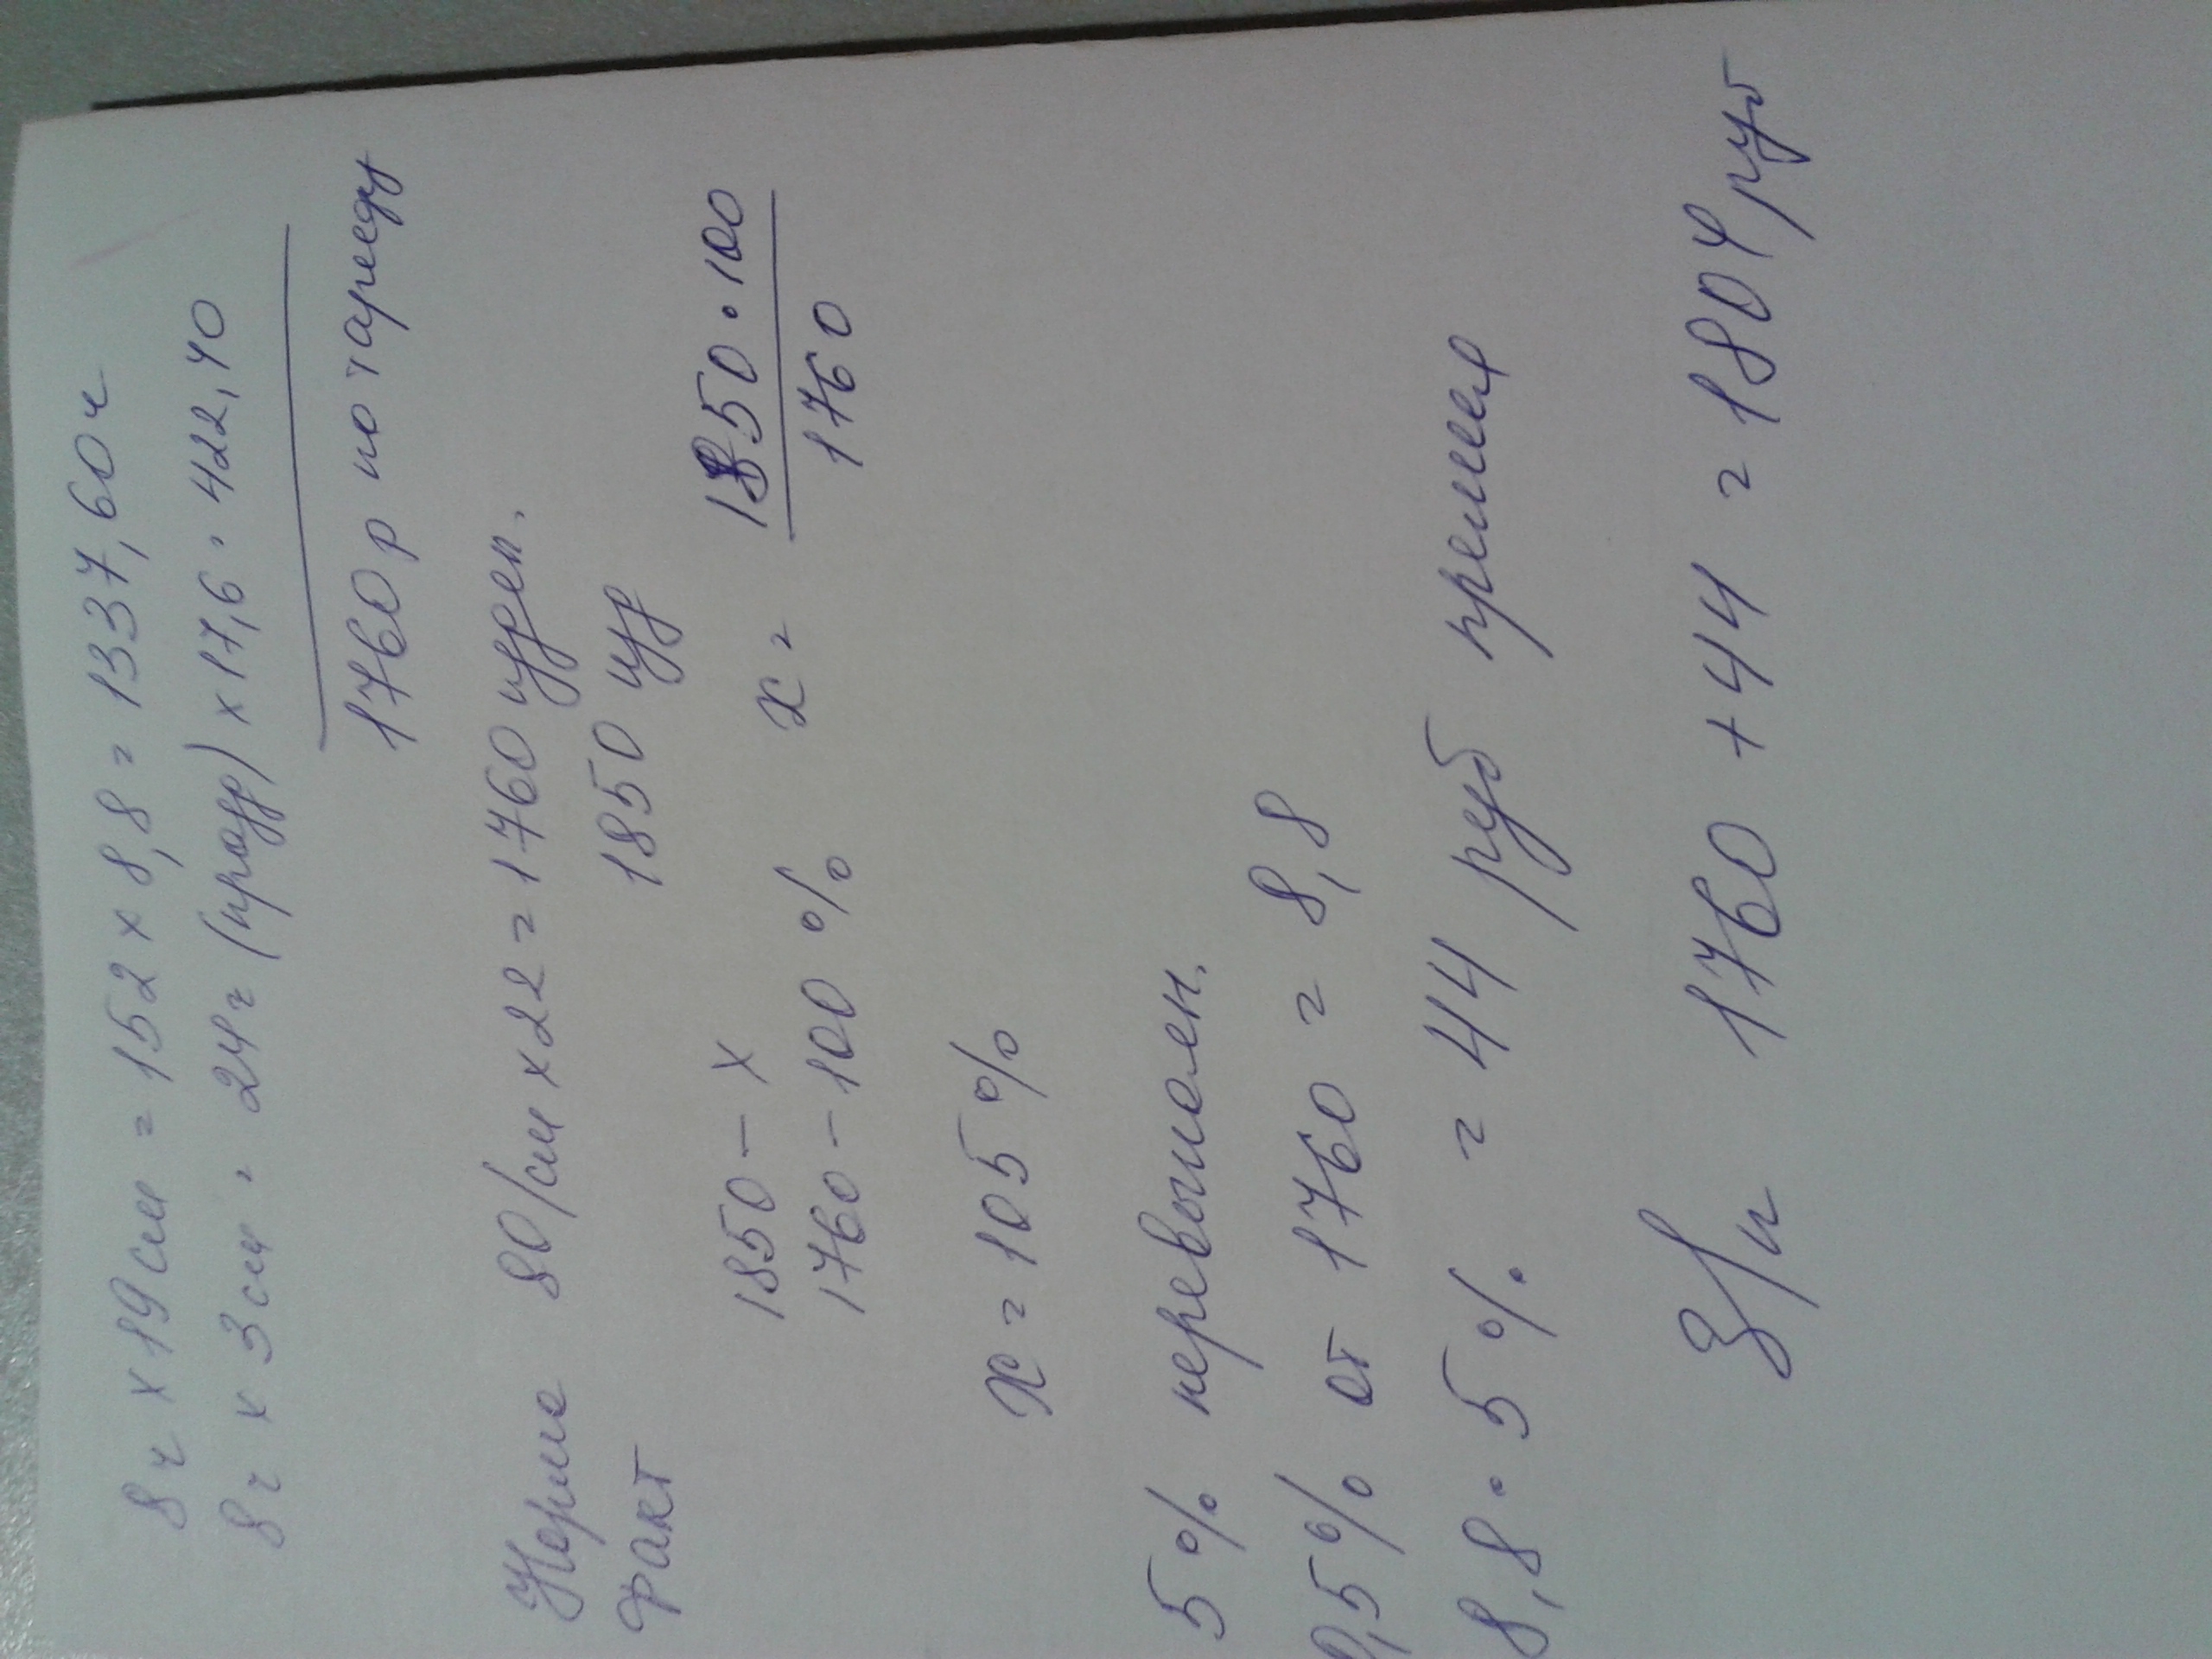 8ч х 19 см = 152 х 8,8 = 1337,60ч
8ч х 3см = 24ч (празд) х 17,6 = 422,40
1760 р по тарифу
Норма 80/см х 22 = 1760 издел.
факт 1850 изд
1850 – х
1760 – 100 %
х = 1850 · 100
1760
х = 105 %
5 % перевыполн.
0,5 % от 1760 = 8,8
8,8 · 5 % = 44 руб премия
З/п 1760 + 44 = 1804 руб